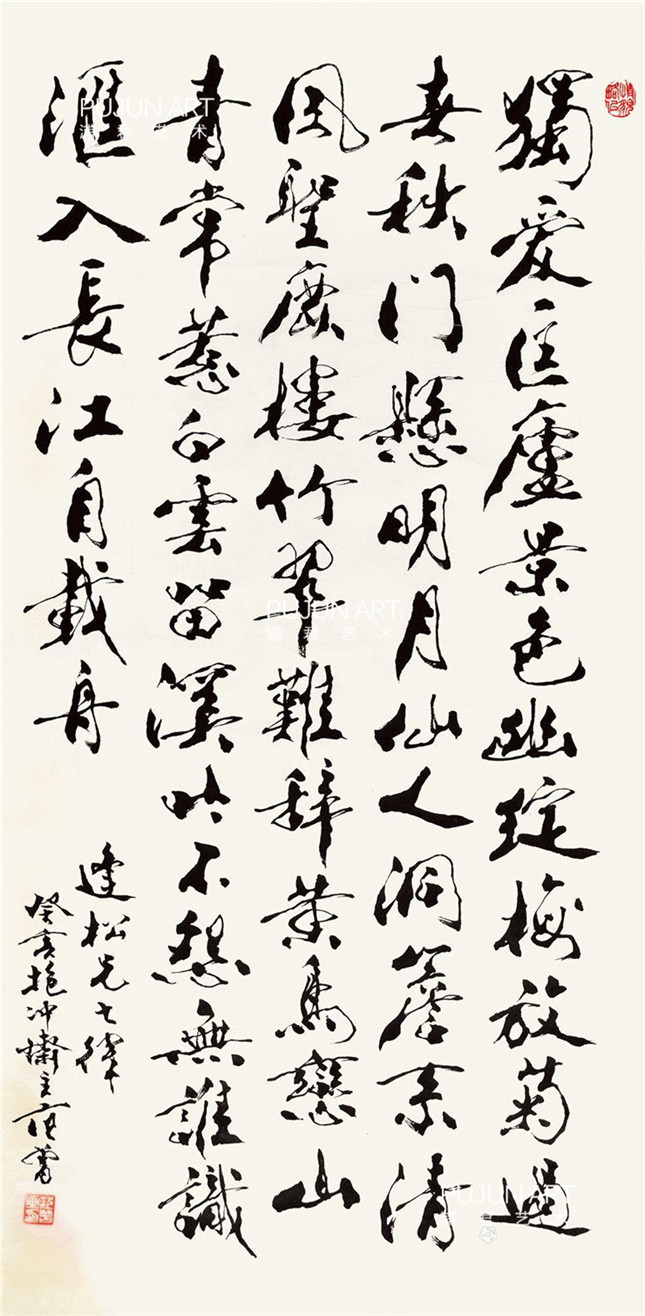 獨愛匡廬景色幽綻梅放菊過
春秋門懸明月仙人洞簷系清
風聖樓竹翠難辭黃鳥戀山
青常惹白雲留溪吟不怨無誰識
匯入長江自載舟
逢松兄七律
癸亥抱冲齋主范曾
PUJUN ART
浦君艺术
PUJUN ART
浦君艺术
PUJUN ART
浦君艺术